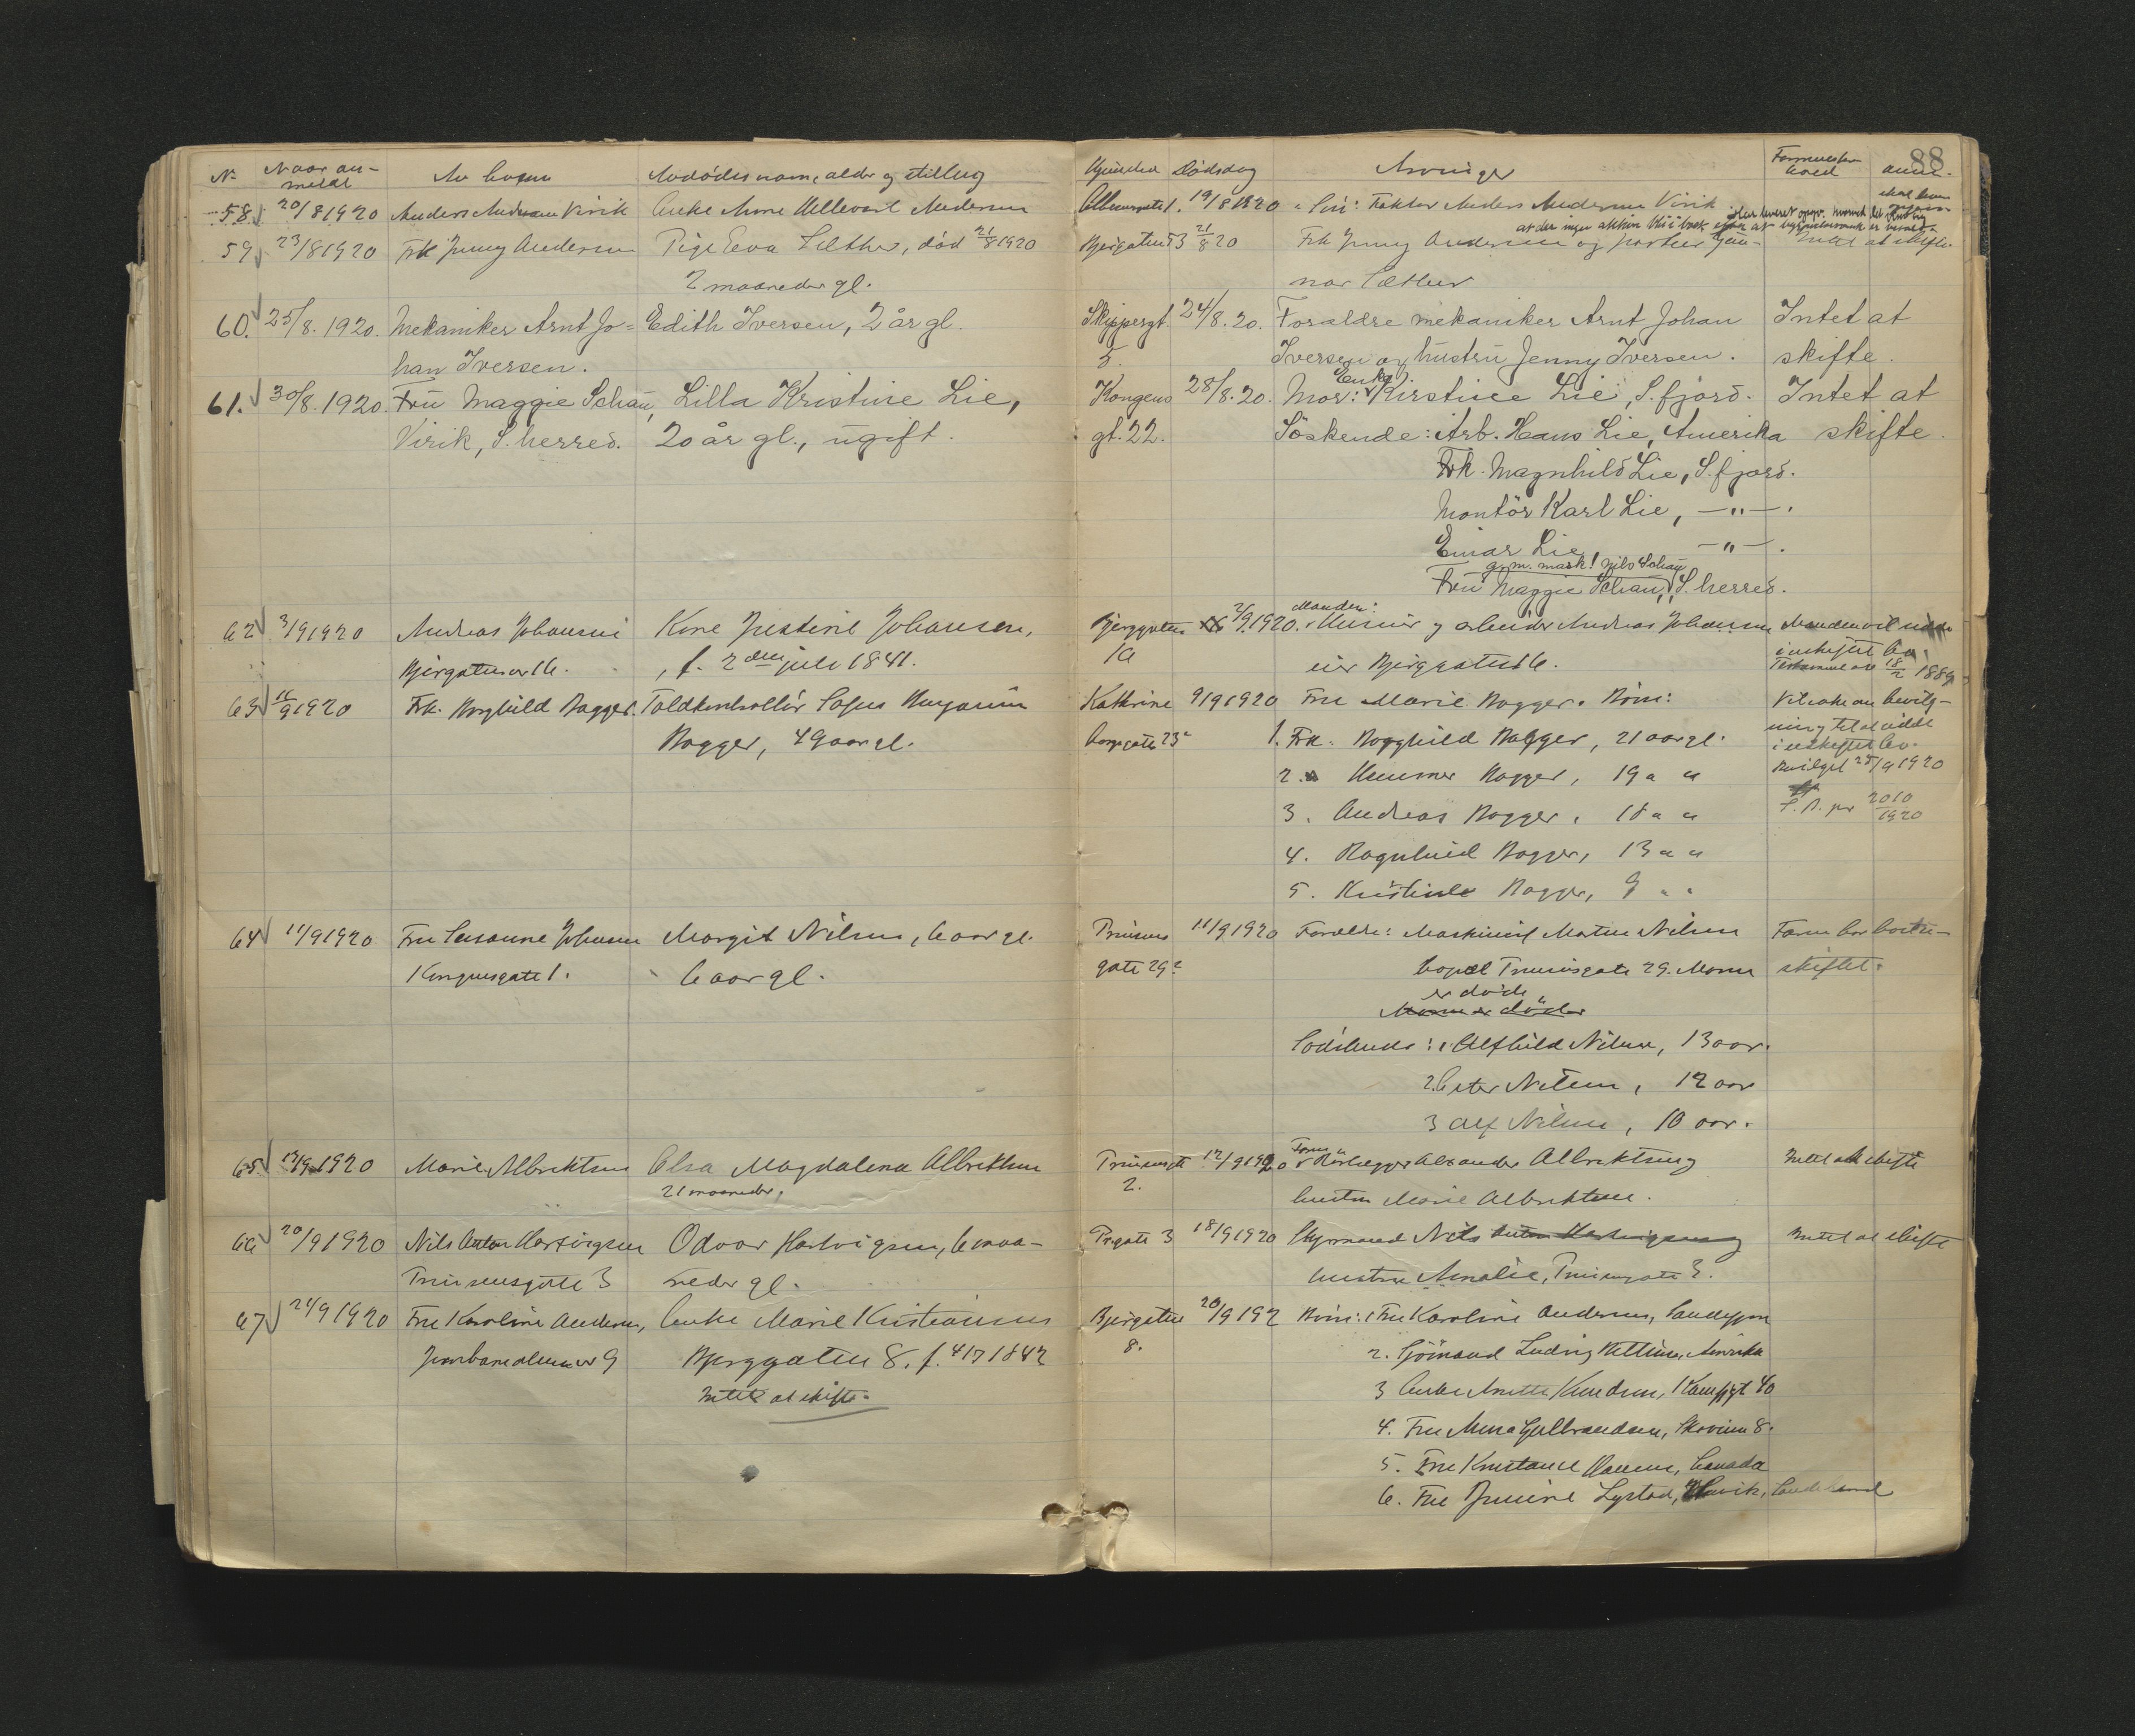 88
No Naar an- Av hvem Avdødes navn, alder og stilling Hjemsted Dødsdag Arvinger Formues- anm.
meldt
58. 20/8 1920 Anders Andersen Virik Enke Anne Hellevart Andersen 1. 19/8 1920 Søn: Faktor Anders Andersen Virik
59 23/8 1920 Frk Jenny Andersen Pige Eva Sæther, død 21/8 1920 Bjergaten 53 21/8 20 Frk Jenny Andersen og Intet at skifte.
2 maaneder gl. nar Sæther
60. 25/8. 1920. Mekaniker Arnt Jo= Edith Iversen, 2 år gl. Skippergt. 24/8. 20. Foraldre mekaniker Arnt Johan Intet at
han Iversen. 5. Iversen og hustru Jenny Iversen. skifte.
61. 30/8. 1920. Fru Maggie Schau, Lilla Kristine Lie, Kongens 28/8. 20. Mor: Enke Kirstine Lie, S.fjord. Intet at
Virik, S.herred. 20 år gl., ugift. gt. 22. Söskende: Arb. Hans Lie, Amerika skifte.
Frk. Magnhild Lie, S.fjord.
Montör Karl Lie, —"—.
Einar Lie —"—.
g. m. mask! Nils Schau
Fru Maggie Schau, S.herred.
62 3/9 1920 Andreas Johansen Kone Justine Johansen, Bjerggaten 2/9 1920. Manden: og arbeider Andreas Johansen Manden vil sidde
Bjergaten 16. , f. 2den juli 1841. 16 eier Bjerggaten 16. i uskiftet bo.
Testamente av 18/2 1889
63 16/9 1920 Frk. Borghild Bagger. Toldkontrollør Sofus Bagger, 49 aar gl. Kathrine 9/9 1920 Fru Marie Bagger. Børn: Vil søke om bevilg-
borgsgate 23 1. Frk. Borghild Bagger, 21 aar gl. ning til at sidde
i uskiftet bo.
2. Bagger, 19 " " Bevilget 25/9 1920
3. Andreas Bagger, 18 " " 2010/1920
4. Ragnhild Bagger, 13 " "
5. Bagger, 9 " "
64 11/9 1920 Fru Susanne Johansen Margit Nilsen, 6 aar gl. Prinsens 11/9 1920 Forældre: Maskinist Martin Nilsen
Kongensgate 1. 6 aar gl. gate 29 bopæl Prinsensgate 29. Moren skiftet.
er død
Moren er død
Sødskende: 1 Alfhild Nilsen, 13 aar.
2 Nilsen, 12 aar
3 Alf Nilsen, 10 aar.
65 13/9 1920 Marie Albrektsen Elsa Magdalena Albrektsen Prinsensgt 12/9 1920 Rørlegger Alexander Albrektsen og Intet at skifte
21 maaneder. 2. hustru Marie Albrektsen.
66 20/9 1920 Nils Anton Hartvigsen Odvar Hartvigsen, 6 maa- Pr gate 3 18/9 1920 Styrmand Nils Anton Hartvigsen og Intet at skifte
Prinsensgate 3 neder gl. hustru Amalie, Prinsensgate 3.
67 21/9 1920 Fru Karoline Andersen, Enke Marie Kristiansen Bjergaten 20/9 192 Børn: 1 Fru Karoline Andersen, Sandefjord
Jernbanealleen 9 Bjerggaten 8. f. 4/7 1842 8. 2. Sjømand Ludvig, Amerika
Intet at skifte. 3 Enke Anette Knudsen, 40
4. Fru Gulbrandsen, 8.
5. Fru Konstanse Hansen, Canada
6. Fru Lystad,